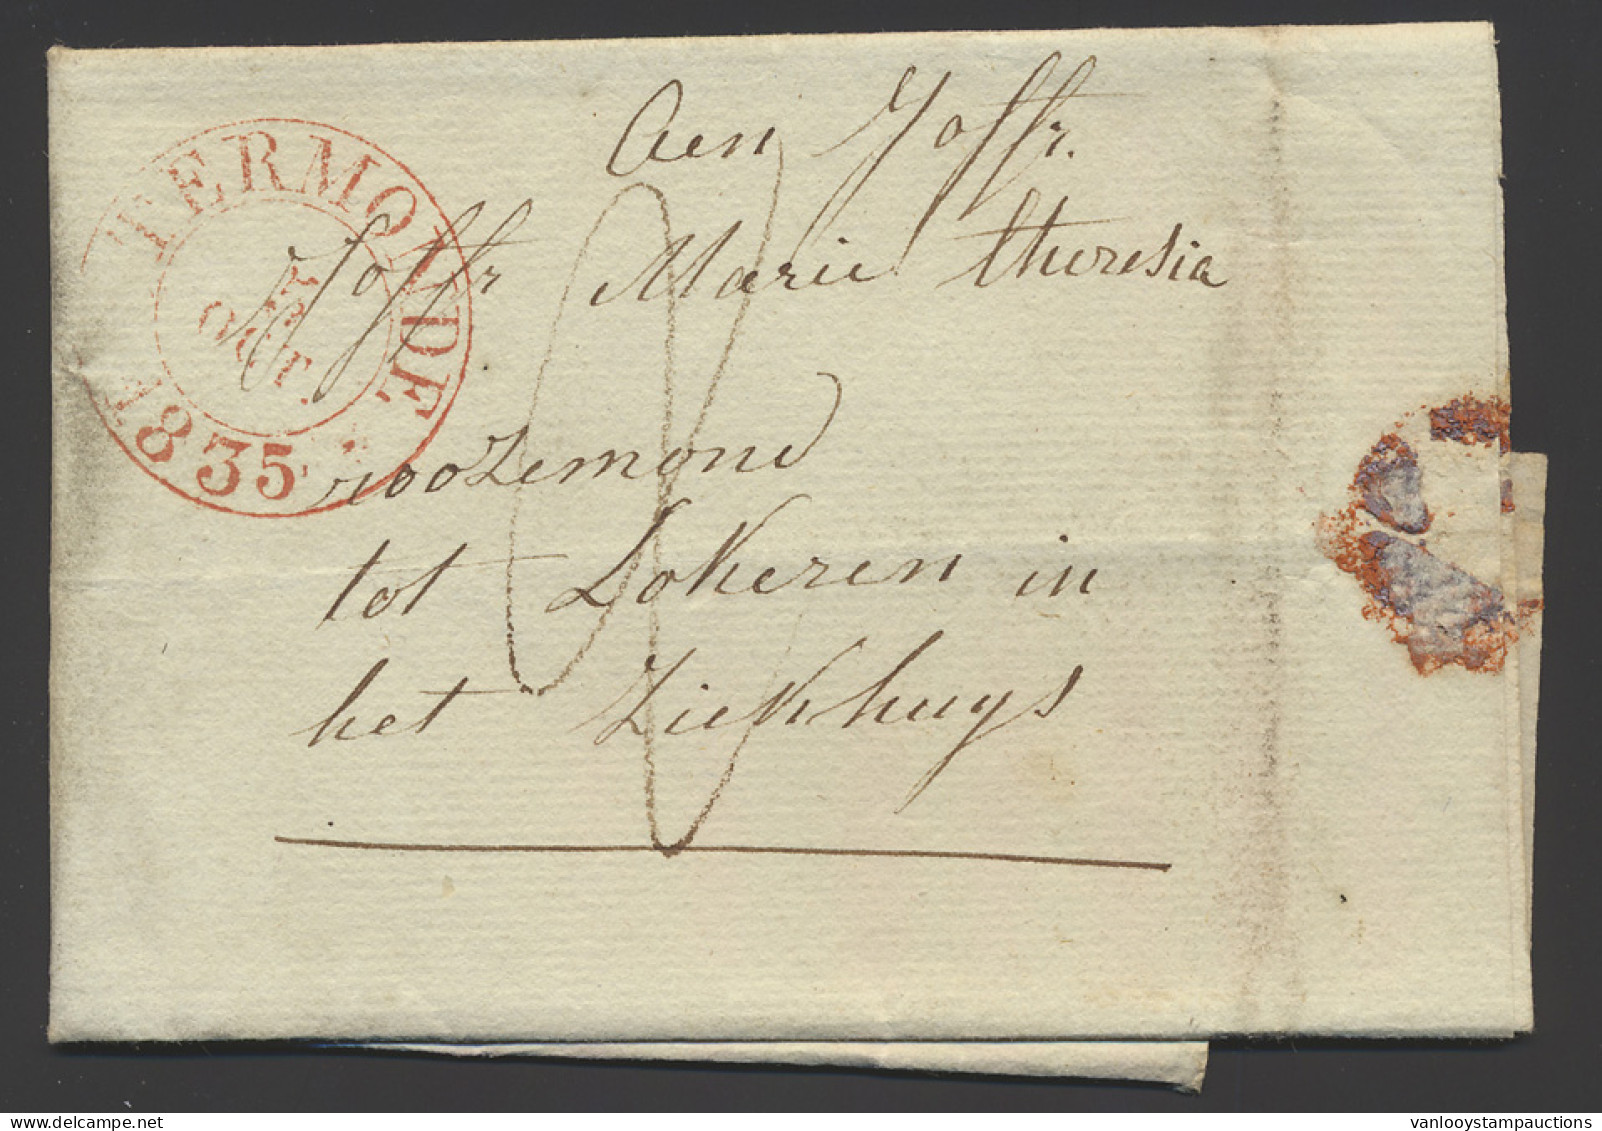 Aen Joffr.
Joffr Marie theresia
roozemond
tot Lokeren in
het Ziekhuys
TERMONDE
OCT.
1835
delcampe.net
vanlooystampauctions